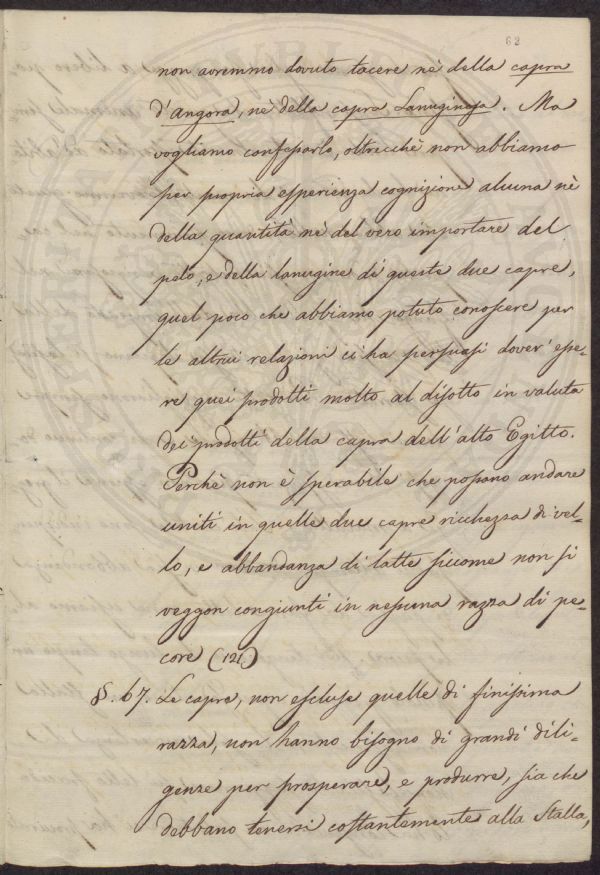 62
non avremmo dovuto tacere nè della capra
d'Angora, nè della capra Lanuginosa. Ma
vogliamo confessarlo, oltrecchè non abbiamo
per propria esperienza cognizione alcuna nè
della quantità nè del vero importare del
pelo, e della lanugine di queste due capre,
quel poco che abbiamo potuto conoscere per
le altrui relazioni ci ha persuasi dover' esse-
re quei prodotti molto al disotto in valuta
dei prodotti della capra dell'alto Egitto.
Perchè non è sperabile che possano andare
uniti in quelle due capre ricchezza di vel-
lo, e abbandanza di latte siccome non si
veggon congiunti in nessuna razza di pe-
core (121)
§. 67. Le capre, non escluse quelle di finissima
razza, non hanno bisogno di grandi dili-
genze per prosperare, e produrre, sia che
debbano tenersi costantemente alla Stalla,